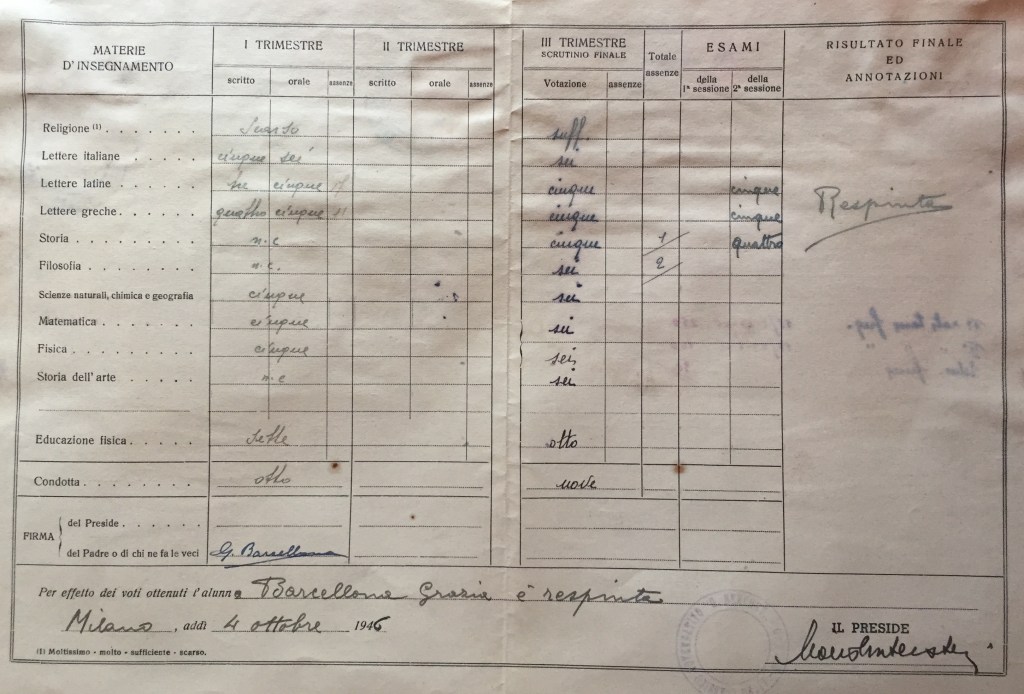 MATERIE D'INSEGNAMENTO I TRIMESTRE II TRIMESTRE III TRIMESTRE SCRUTINIO FINALE Totale assenze ESAMI RISULTATO FINALE ED ANNOTAZIONI
scritto orale assenze scritto orale assenze Votazione assenze della 1ª sessione della 2ª sessione
Religione (1) . . . . . . . Scarso suff.
Lettere italiane . . . . . cinque sei sei
Lettere latine . . . . . . sei cinque cinque cinque Respinta
Lettere greche . . . . . . quattro cinque cinque cinque
Storia . . . . . . . . . n.c cinque 1 quattro
Filosofia . . . . . . . . n.c. sei 2
Scienze naturali, chimica e geografia cinque sei
Matematica . . . . . . . cinque sei
Fisica . . . . . . . . . cinque sei
Storia dell'arte . . . . . n.c sei
Educazione fisica . . . . . sette otto
Condotta . . . . . . . . otto nove
FIRMA
del Preside . . . . . .
del Padre o di chi ne fa le veci G. Barcellona
Per effetto dei voti ottenuti l'alunna Barcellona Grazia è respinta
Milano, addì 4 ottobre 1946
IL PRESIDE
(1) Moltissimo - molto - sufficiente - scarso.